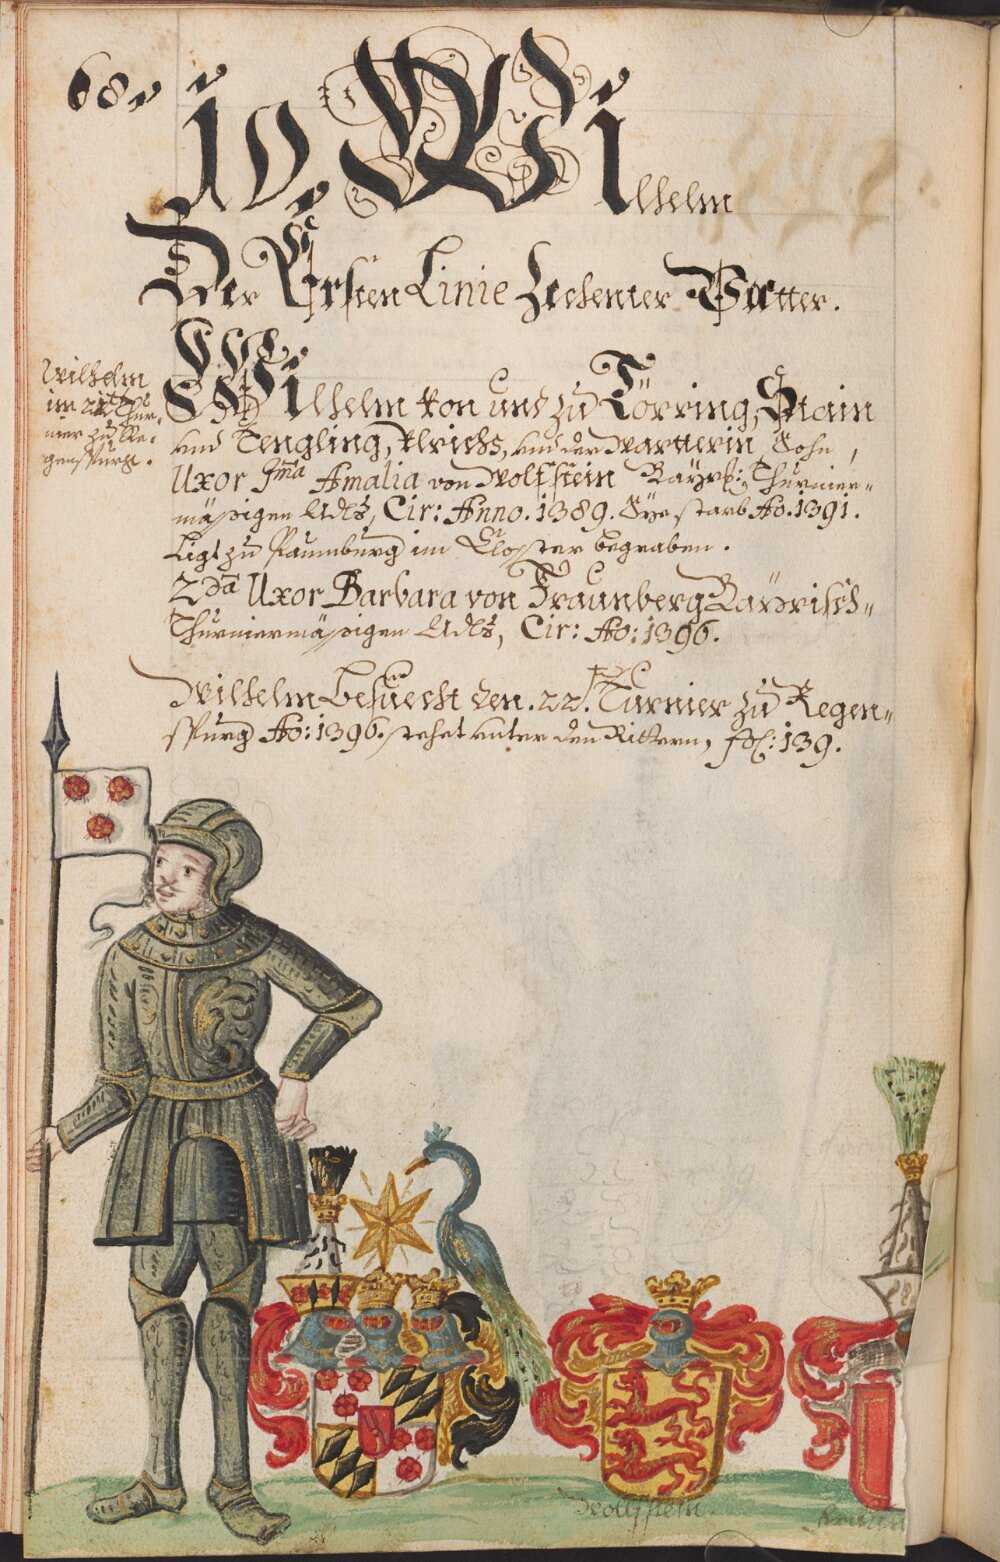 68.
10. Wilhelm
Der Ersten Linie Zechenter Vatter.
Wilhelm
im 22t Thur-
nier zu Re-
genspurg.
Wilhelm von und zu Törring, Stain
und Tengling, Ulrichs, und der Sohn,
Uxor Ima Amalia von Wolfstein Bayr: Thurnier-
mässigen Adls, Cir: Anno. 1389. Sye starb Ao. 1391.
Ligt zu Paumburg im Closter begraben.
2da Uxor Barbara von Fraunberg Bayrisch-
Thurniermässigen Adls, Cir: Ao: 1396.
Wilhelm besuecht den. 22. Turnier zu Regen-
spurg Ao: 1396. stehet unter den Rittern, fol: 139.
Wolfstein.